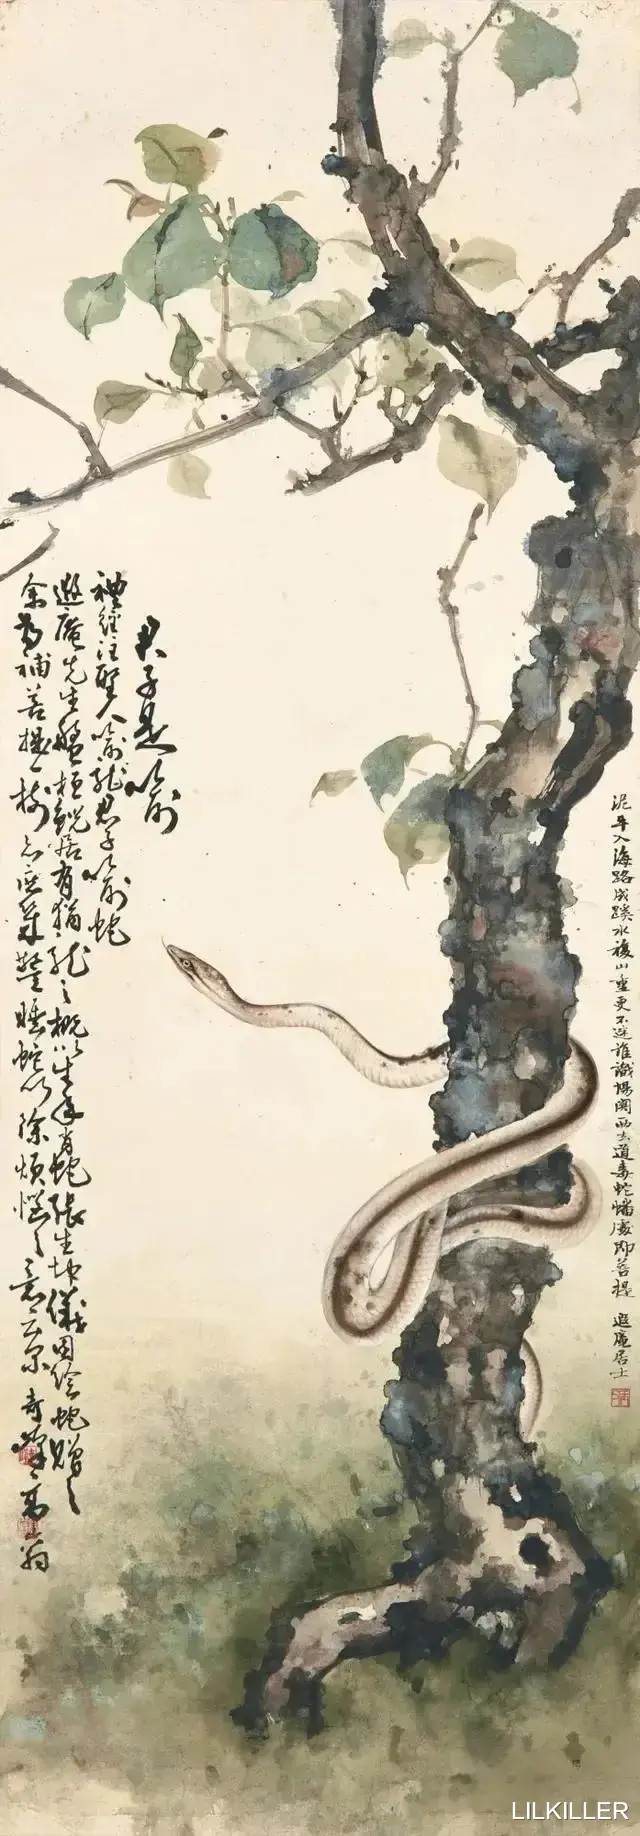 君子是喻
禮經注聖人喻龍君子喻蛇
遐庵先生盤桓蛻居有猶龍之概以生年肖蛇張生坤儀因繪蛇贈之
余為補菩提一樹亦警睡蛇以除煩惱之意云爾 奇峰高嵡
泥牛入海路成蹊水複山重更不迷誰識陽關西去道毒蛇蟠處即菩提 遐庵居士
LILKILLER